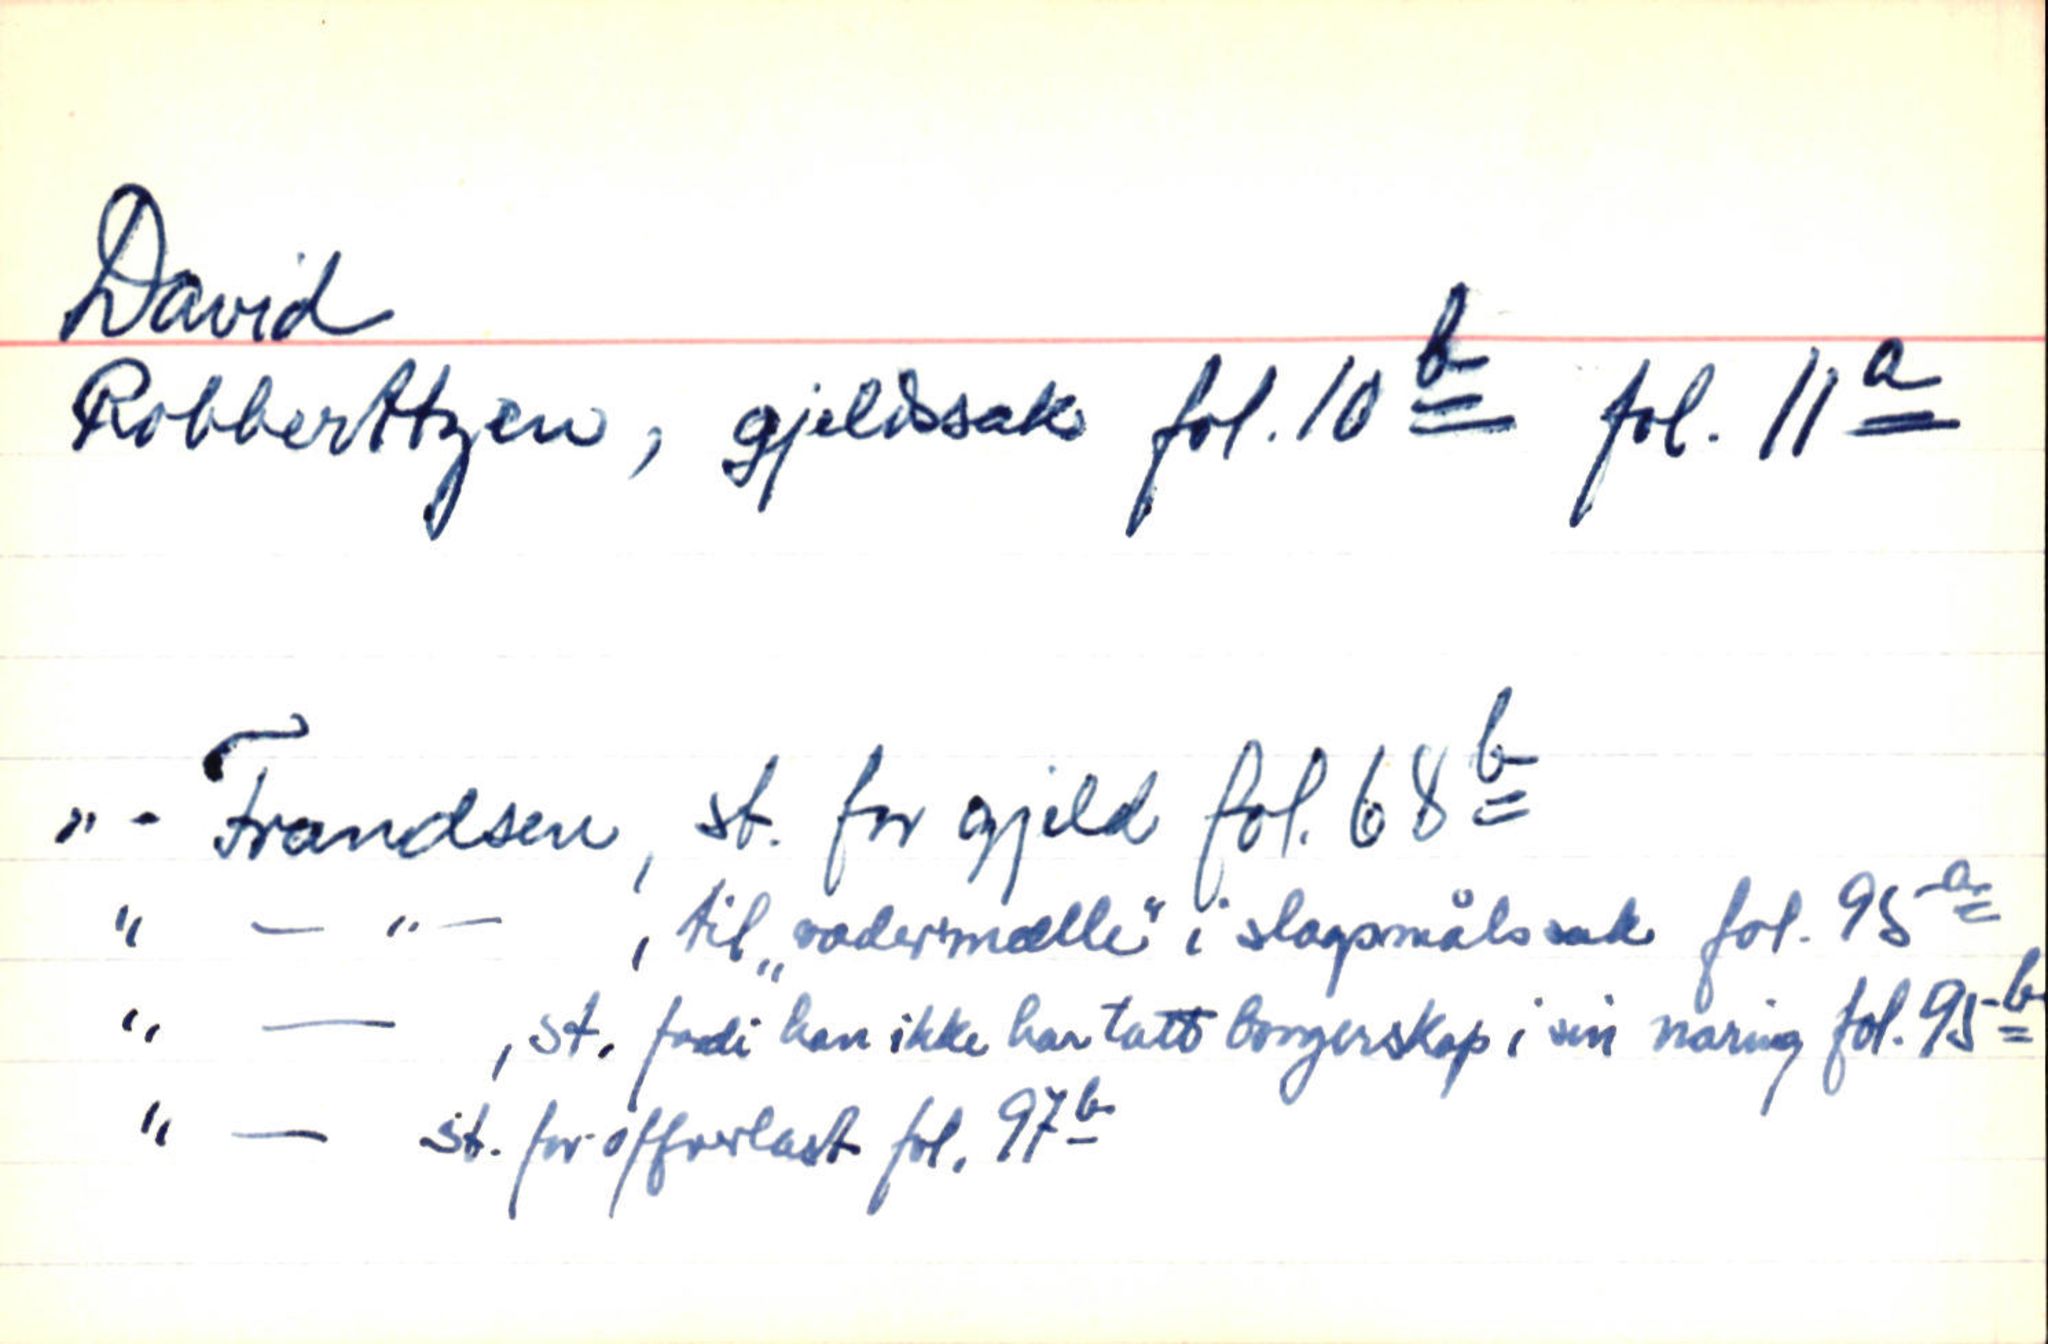 David
Robberttzen, gjeldssak fol. 10 b fol. 11 a
" - Frandsen, st. for gjeld fol. 68 b
" — " — , til „vadermælle" i slagsmålssak fol. 95 a
" — , st. fordi han ikke har tatt borgerskap i sin næring fol. 95 b
" — st. for offverlast fol. 97 b